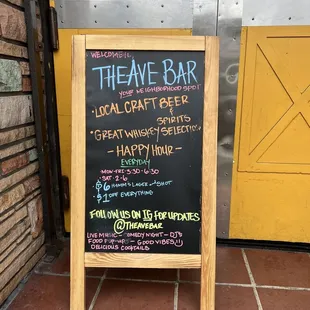 WELCOME TO
THE AVE BAR
YOUR NEIGHBORHOOD SPOT
• LOCAL CRAFT BEER
& SPIRITS
• GREAT WHISKEY SELECTION
- HAPPY HOUR -
EVERYDAY
MON-FRI 3:30-6:30
• SAT. 2-6
• $6 HAMM'S LAGER + SHOT
• $1 OFF EVERYTHING
FOLLOW US ON IG FOR UPDATES
@THEAVEBAR
LIVE MUSIC - COMEDY NIGHT - DJ'S
FOOD POP-UPS - GOOD VIBES!!!
DELICIOUS COCKTAILS